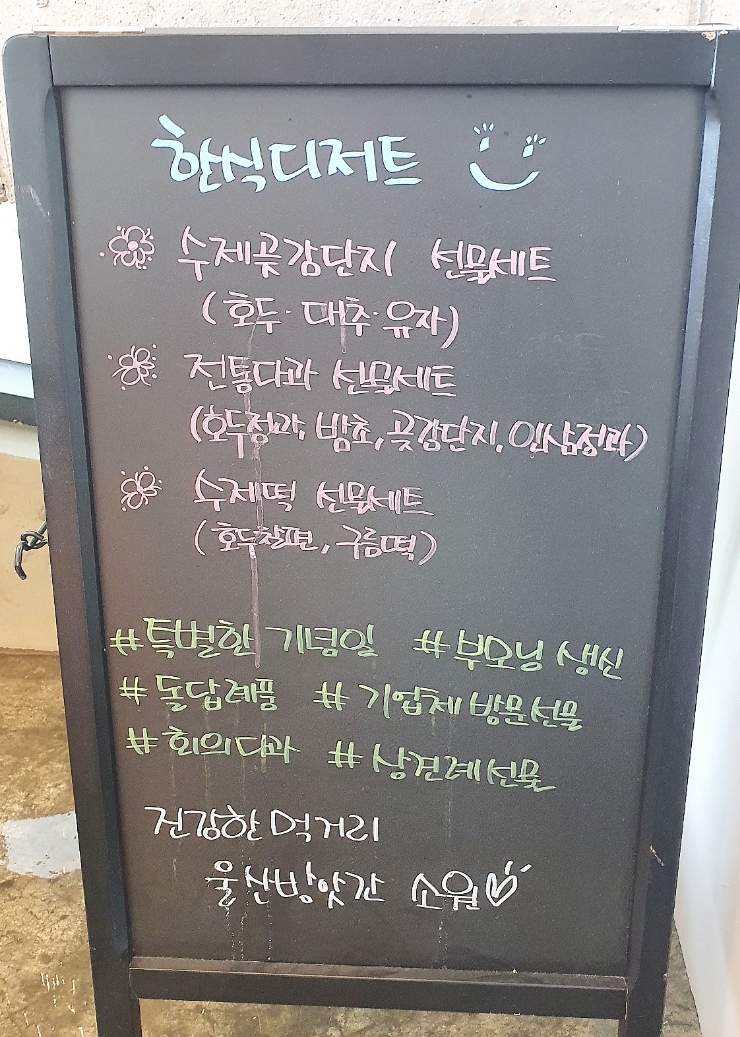 한식디저트
수제곶감단지 선물세트
(호두·대추·유자)
전통다과 선물세트
(호두정과, 밤초, 곶감단지, 인삼정과)
수제떡 선물세트
(호두찰편, 구름떡)
#특별한 기념일 #부모님 생신
#돌답례품 #기업체 방문선물
#회의다과 #상견례선물
건강한 먹거리
울산방앗간 소월